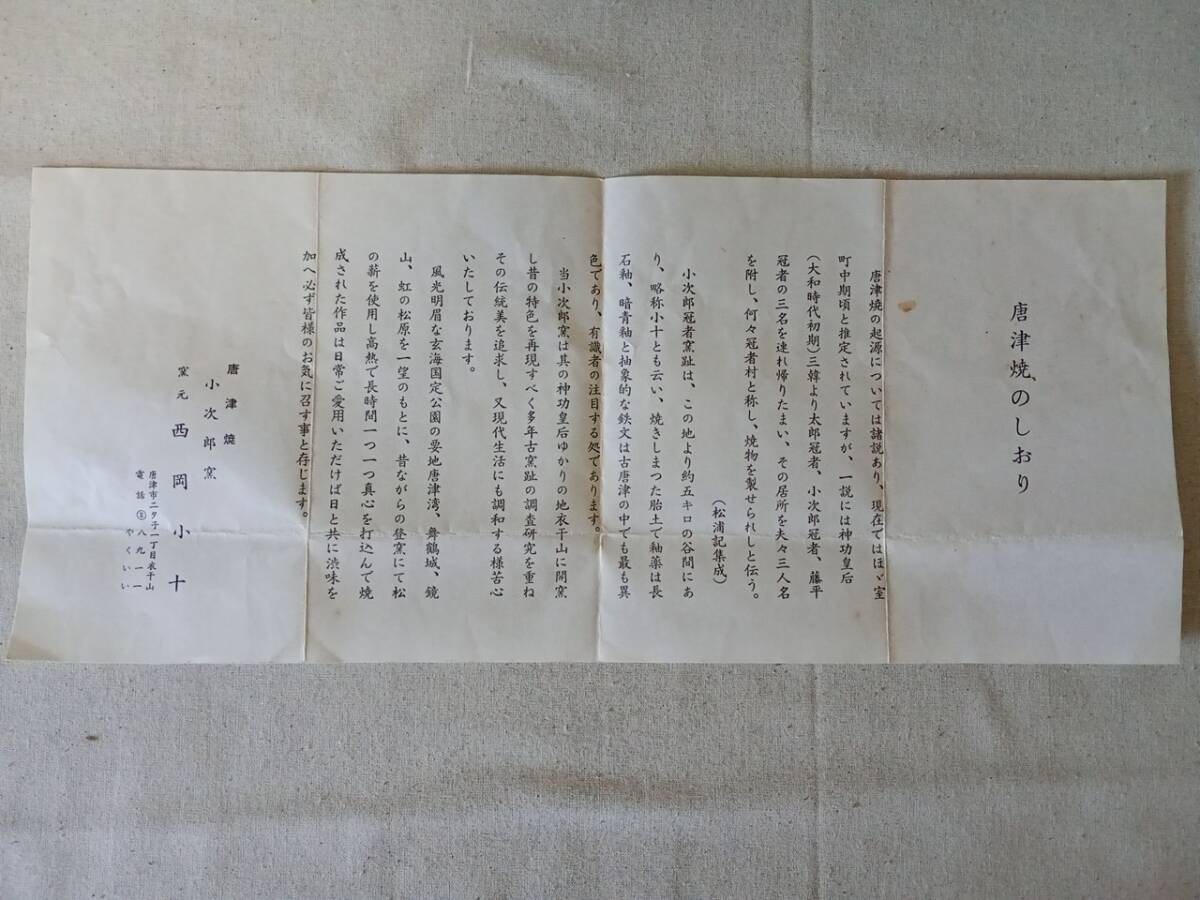 唐津焼のしおり
唐津焼の起源については諸説あり、現在ではほゞ室
町中期頃と推定されていますが、一説には神功皇后
(大和時代初期)三韓より太郎冠者、小次郎冠者、藤平
冠者の三名を連れ帰りたまい、その居所を夫々三人名
を附し、何々冠者村と称し、焼物を製せられしと伝う。
(松浦記集成)
小次郎冠者窯趾は、この地より約五キロの谷間にあ
り、略称小十とも云い、焼きしまつた胎土で釉薬は長
石釉、暗青釉と抽象的な鉄文は古唐津の中でも最も異
色であり、有識者の注目する処であります。
当小次郎窯は其の神功皇后ゆかりの地衣干山に開窯
し昔の特色を再現すべく多年古窯趾の調査研究を重ね
その伝統美を追求し、又現代生活にも調和する様苦心
いたしております。
風光明眉な玄海国定公園の要地唐津湾、舞鶴城、鏡
山、虹の松原を一望のもとに、昔ながらの登窯にて松
の薪を使用し高熱で長時間一つ一つ真心を打込んで焼
成された作品は日常ご愛用いただけば日と共に渋味を
加へ必ず皆様のお気に召す事と存じます。
唐津焼
小次郎窯
窯元 西岡小十
唐津市二夕子一丁目衣干山
電話⑧八九一一
やくいい